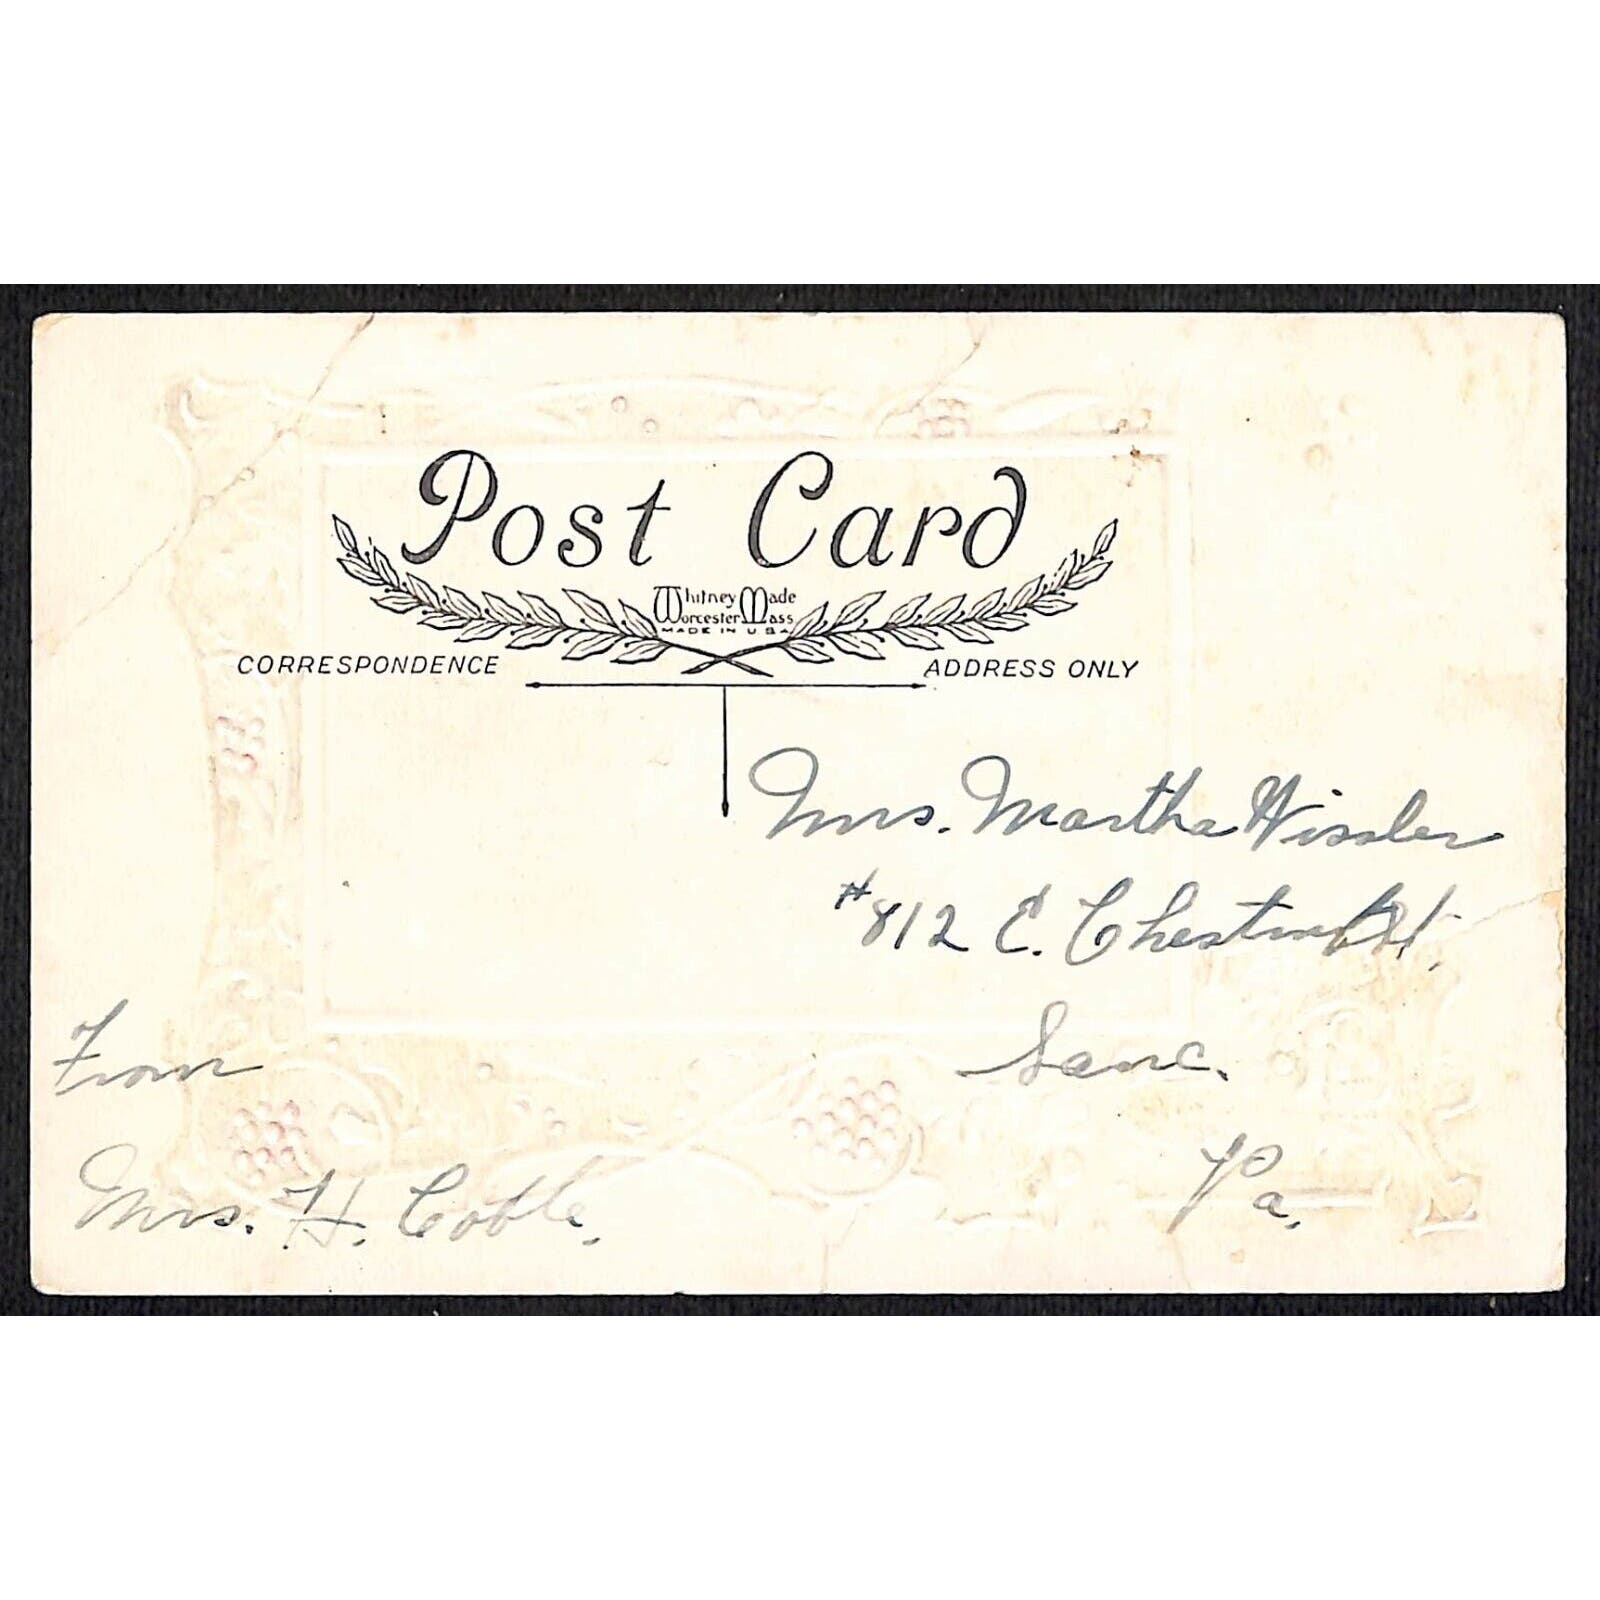 Post Card
Whitney Made
Worcester Mass
MADE IN USA
CORRESPONDENCE
ADDRESS ONLY
Mrs. Martha Wissler
#812 E. Chestnut St.
Lanc.
Pa.
From
Mrs. H. Coble.